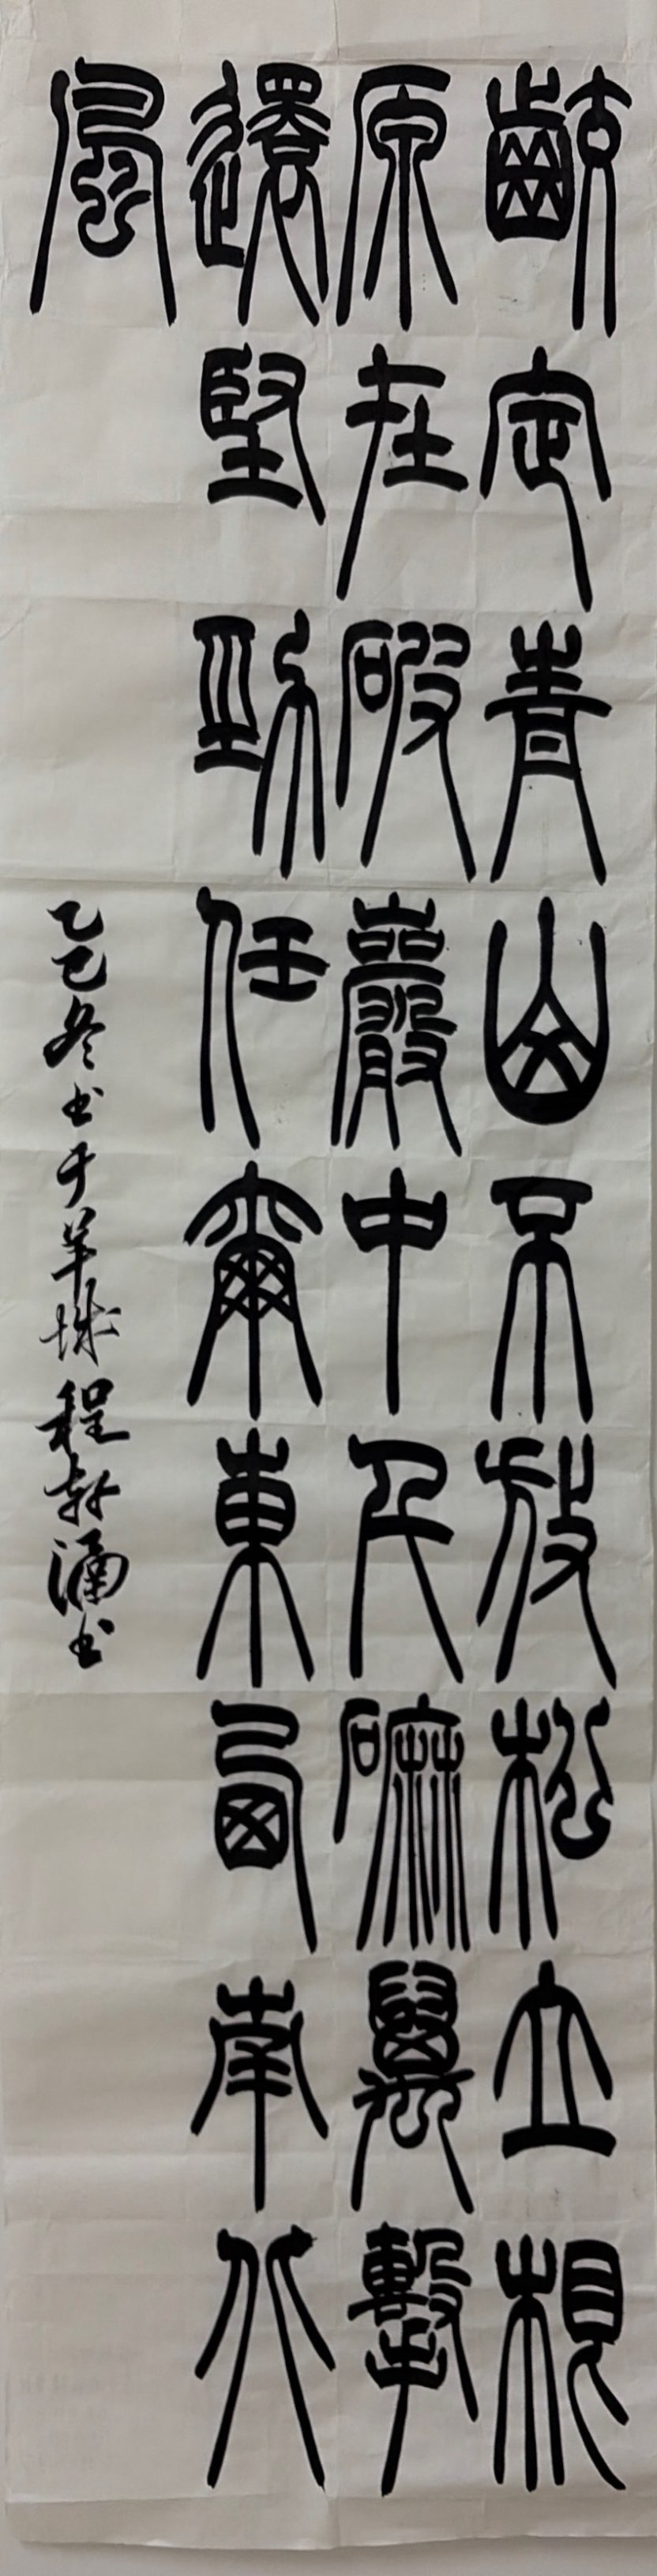 齩定青山不放松立根
原在破巖中千磨萬擊
還堅勁任爾東西南北
風
乙巳冬书于羊城程涌书